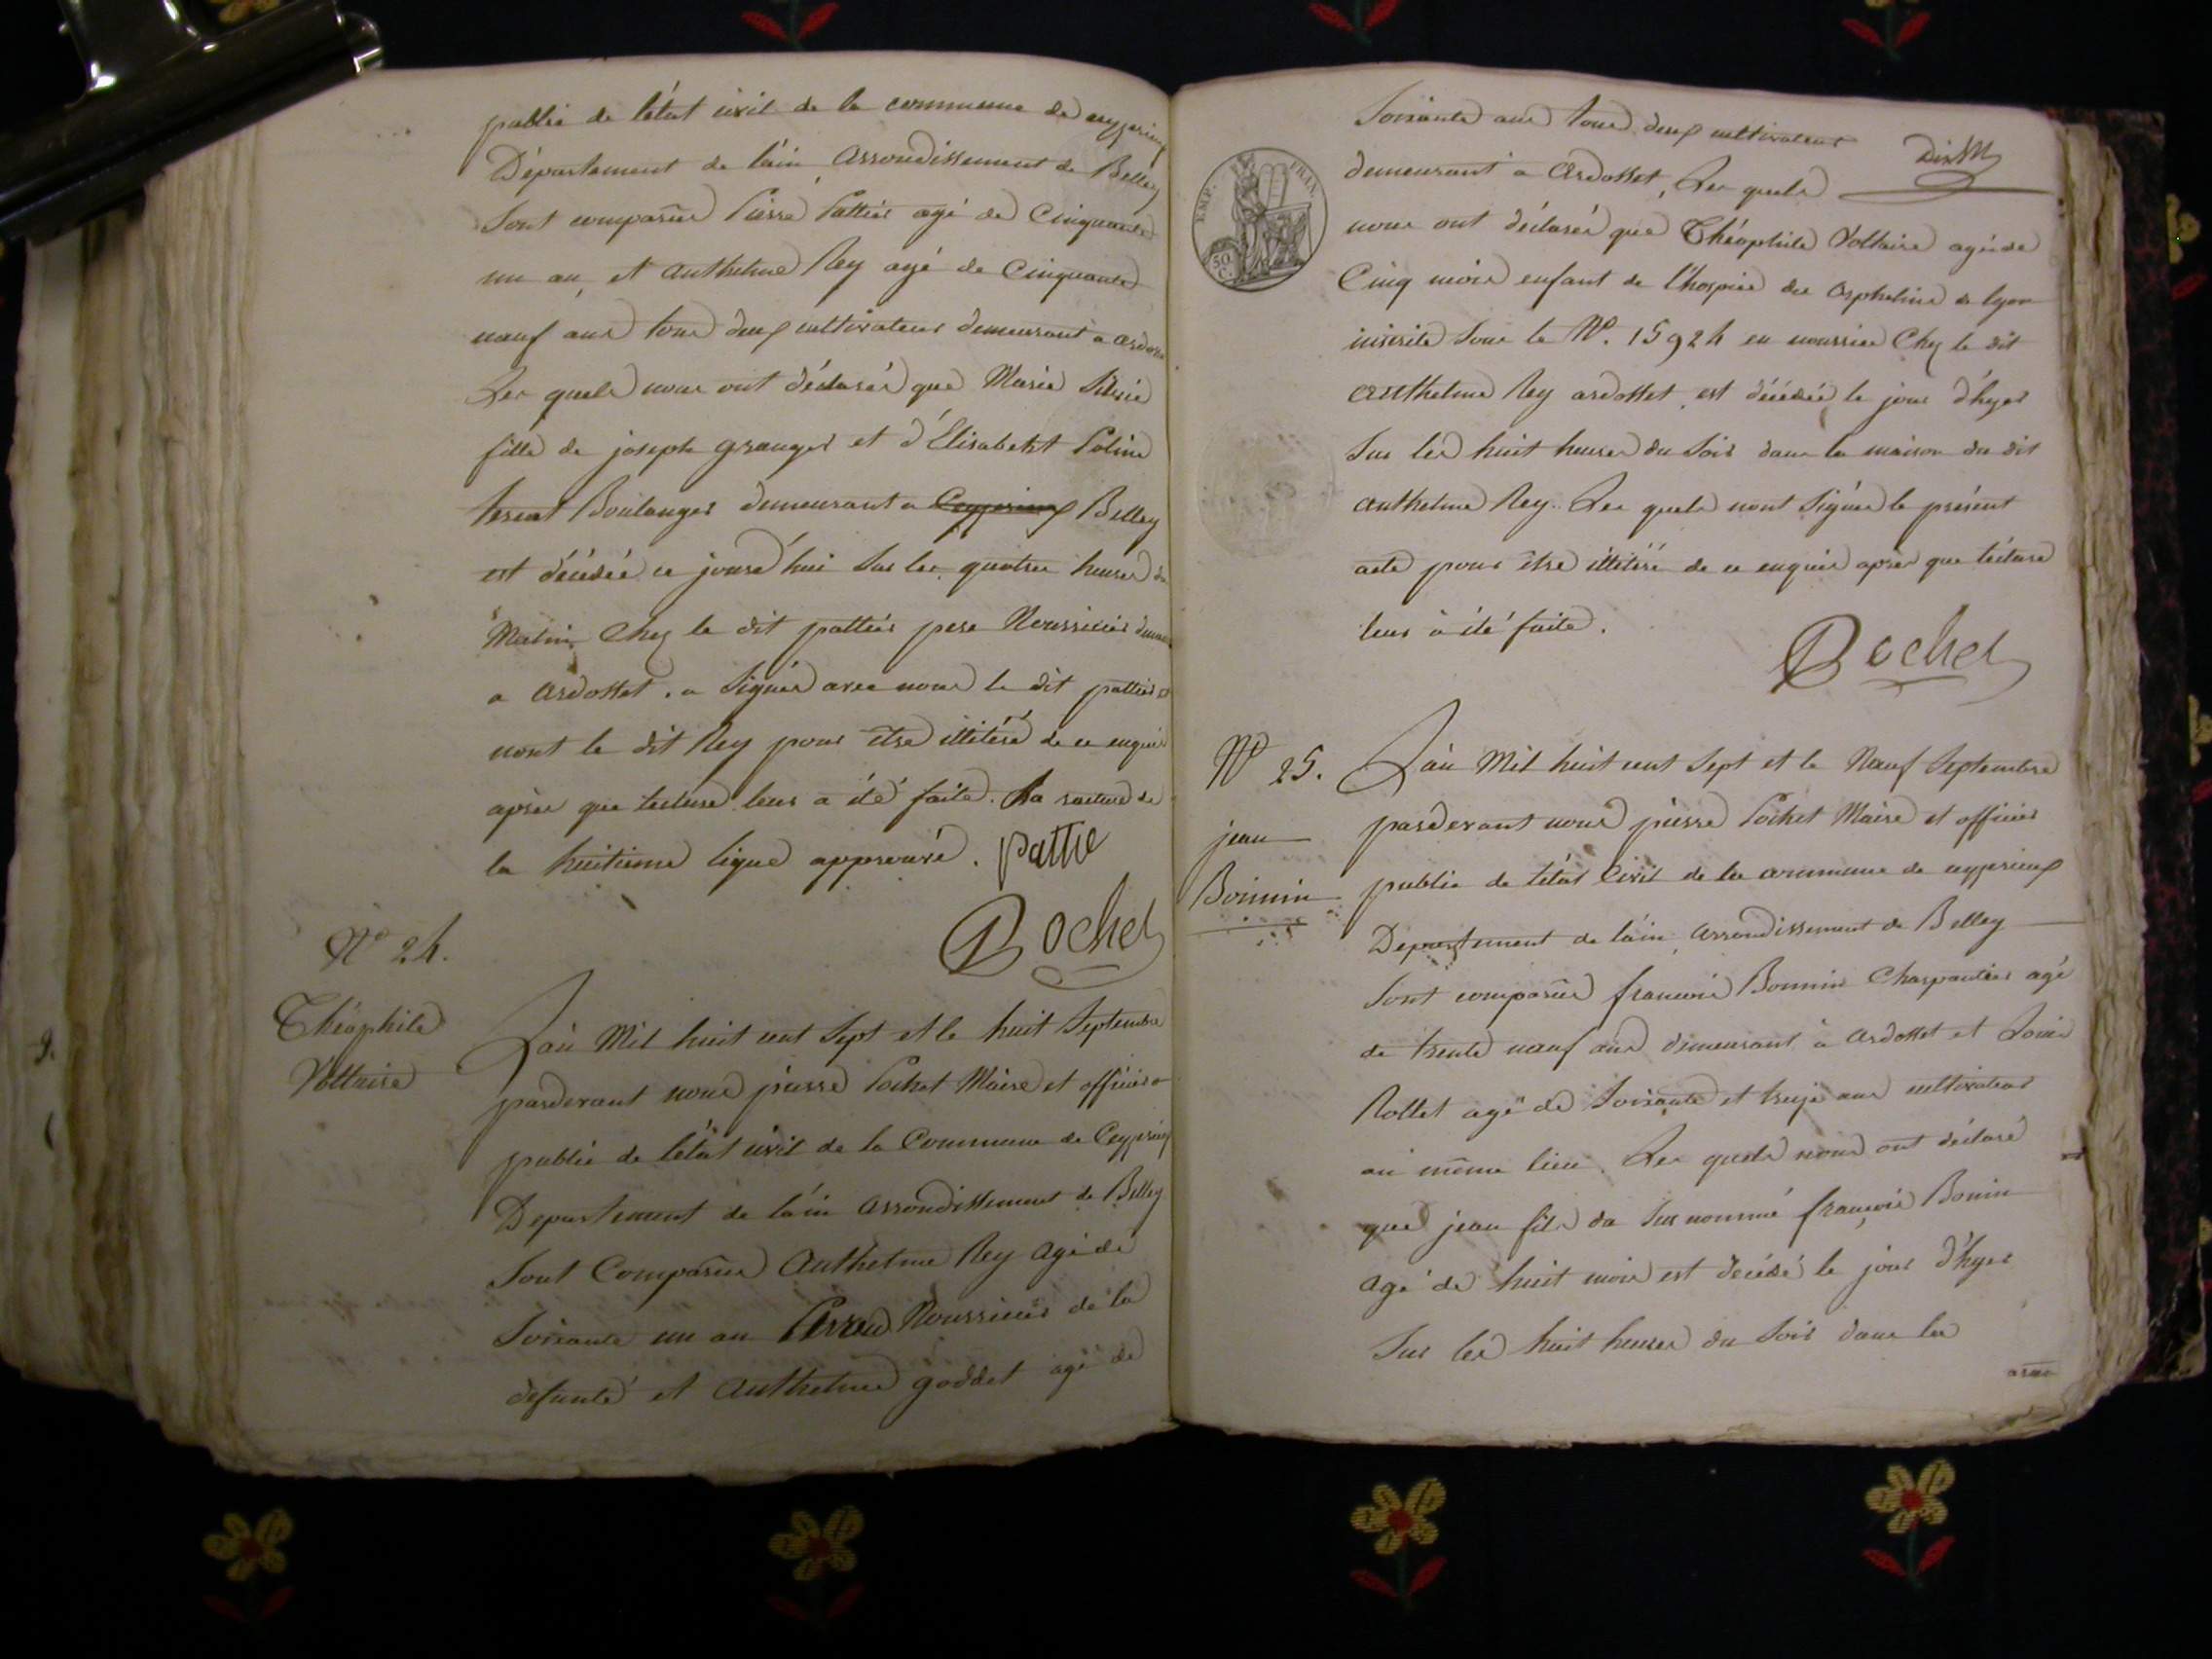 public de létat civil de la commune de ceyzerieu
Département de lain, arrondissement de Belley
Sont comparus Pierre Pattier agé de Cinquante
un an, et anthelme Rey agé de Cinquante
neuf ans tous deux cultivateurs demeurant a
Les quels nous ont déclarés que Marie
fille de joseph granger et d'Elisabeth
Boulanger demeurant a Belley
est décédée ce jourd'hui sur les quatre heures du
Matin chez le dit pattier pere Nourricier
a ardosset. a Signés avec nous le dit pattier
nont le dit Rey pour être illitéré de ce enquis
après que lecture leur a été faite. La rature de
la huitieme ligne approuvé. Pattie
Pochet
Nº 24.
Théophile
Voltaire
Lan Mil huit cent Sept et le huit Septembre
pardevant nous pierre Pochet Maire et officier
public de létat civil de la Commune de Ceyzerieu
Departement de lain arrondissement de Belley
Sont Comparus Anthelme Rey agé de
Soixante un an Nourricier de la
défunte et Anthelme goddet agé de
Soixante ans tous deux cultivateurs
demeurant a Ardosset, Les quels
nous ont déclarés que Théophile Voltaire agé de
Cinq mois enfant de l'hospice des orphelins de lyon
inscrite sous le Nº. 15924 en nourrice Chez le dit
anthelme Rey ardosset est décédé le jour d'hyer
Sur les huit heures du Soir dans la maison du dit
anthelme Rey. Les quels nont Signés le présent
acte pour être illitéré de ce enquis après que lecture
leur à été faite.
Pochet
EMP. FRAN.
50 C.
Nº 25.
jean
Bonnin
Lan Mil huit cent Sept et le Neuf Septembre
pardevant nous pierre Pochet Maire et officier
public de létat Civil de la commune de ceyzerieux
Departement de lain, arrondissement de Belley
Sont comparus francois Bonnin Charpantier agé
de trente neuf ans demeurant à ardosset et Louis
Rollet agé de Soixante et treize ans cultivateur
au même lieu. Les quels nous ont déclaré
que jean fils du Sus nommé françois Bonin
agé de huit mois est décédé le jour d'hyer
Sur les huit heures du Soir dans la